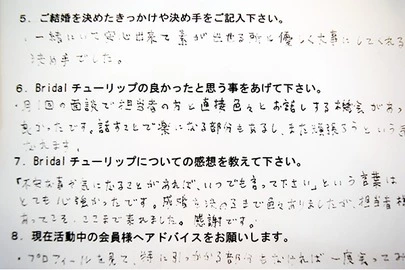 5．ご結婚を決めたきっかけや決め手をご記入下さい。
・一緒にいて安心出来て素が出せる所と優しく大事にしてくれる
決め手でした。
6．Bridalチューリップの良かったと思う事をあげて下さい。
・月1回の面談で担当者の方と直接色々とお話しする機会があっ
良かったです。話すことで楽になる部分もあるし、また頑張ろうという
なれます。
7．Bridalチューリップについての感想を教えて下さい。
「不安な事や気になることがあれば、いつでも言って下さい」という言葉は
とても心強かったです。成婚を決めるまで色々ありましたが、担当者様
あってこそ、ここまで来れました。感謝です。
8．現在活動中の会員様へアドバイスをお願いします。
・プロフィールを見て、特に引っかかる部分もなければ一度会ってみ